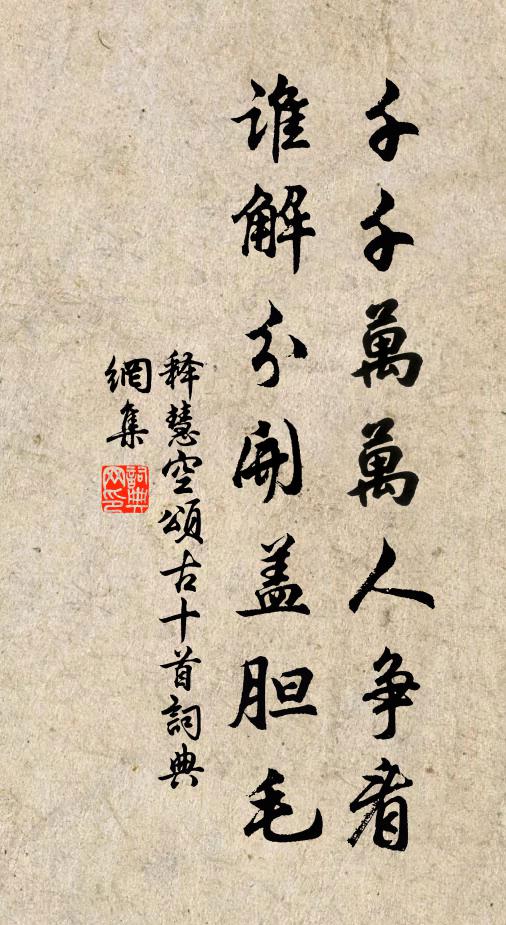 千千萬萬人争看
誰解分開盖胆毛
释慧空頌古十首詞典
網集
詞典
网印